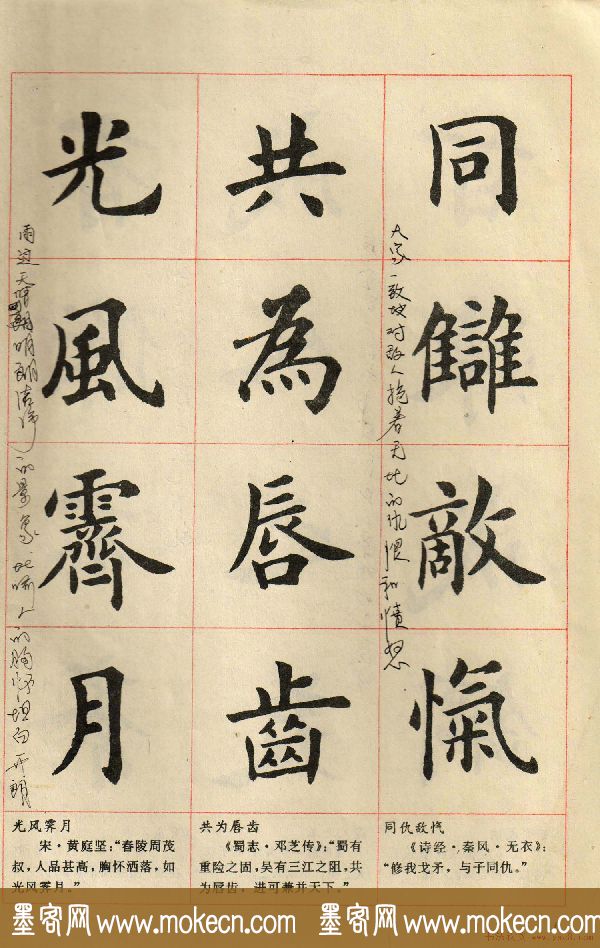 同讎敵愾
共為唇齒
光風霽月
大家一致地对敌人抱着无比的仇恨和愤怒
的景象 比喻人的胸怀坦白开朗
同仇敌忾
《诗经·秦风·无衣》：
“修我戈矛，与子同仇。”
共为唇齿
《蜀志·邓芝传》：“蜀有
重险之固，吴有三江之阻，共
为唇齿，进可兼并天下。”
光风霁月
宋·黄庭坚：“舂陵周茂
叔，人品甚高，胸怀洒落，如
光风霁月。”
墨客网 www.mokecn.com 墨客网 www.mokecn.com